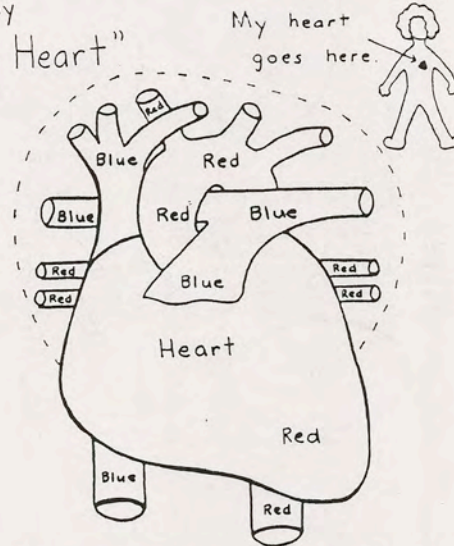 My heart
Heart"
goes here.
Red
Blue
Red
Blue
Red
Blue
Blue
Red
Red
Red
Red
Heart
Red
Blue
Red